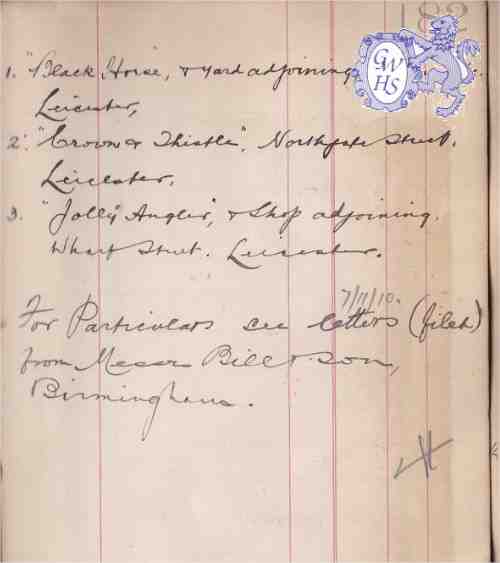 182
1. "Black Horse, & yard adjoining,
Leicester,
2. "Crown & Thistle", Northgate Street,
Leicester,
3. "Jolly Angler", & Shop adjoining.
Wharf Street. Leicester.
7/11/10.
For Particulars see letters (filed)
from Messrs Bill & Son,
Birmingham.
GW
HS